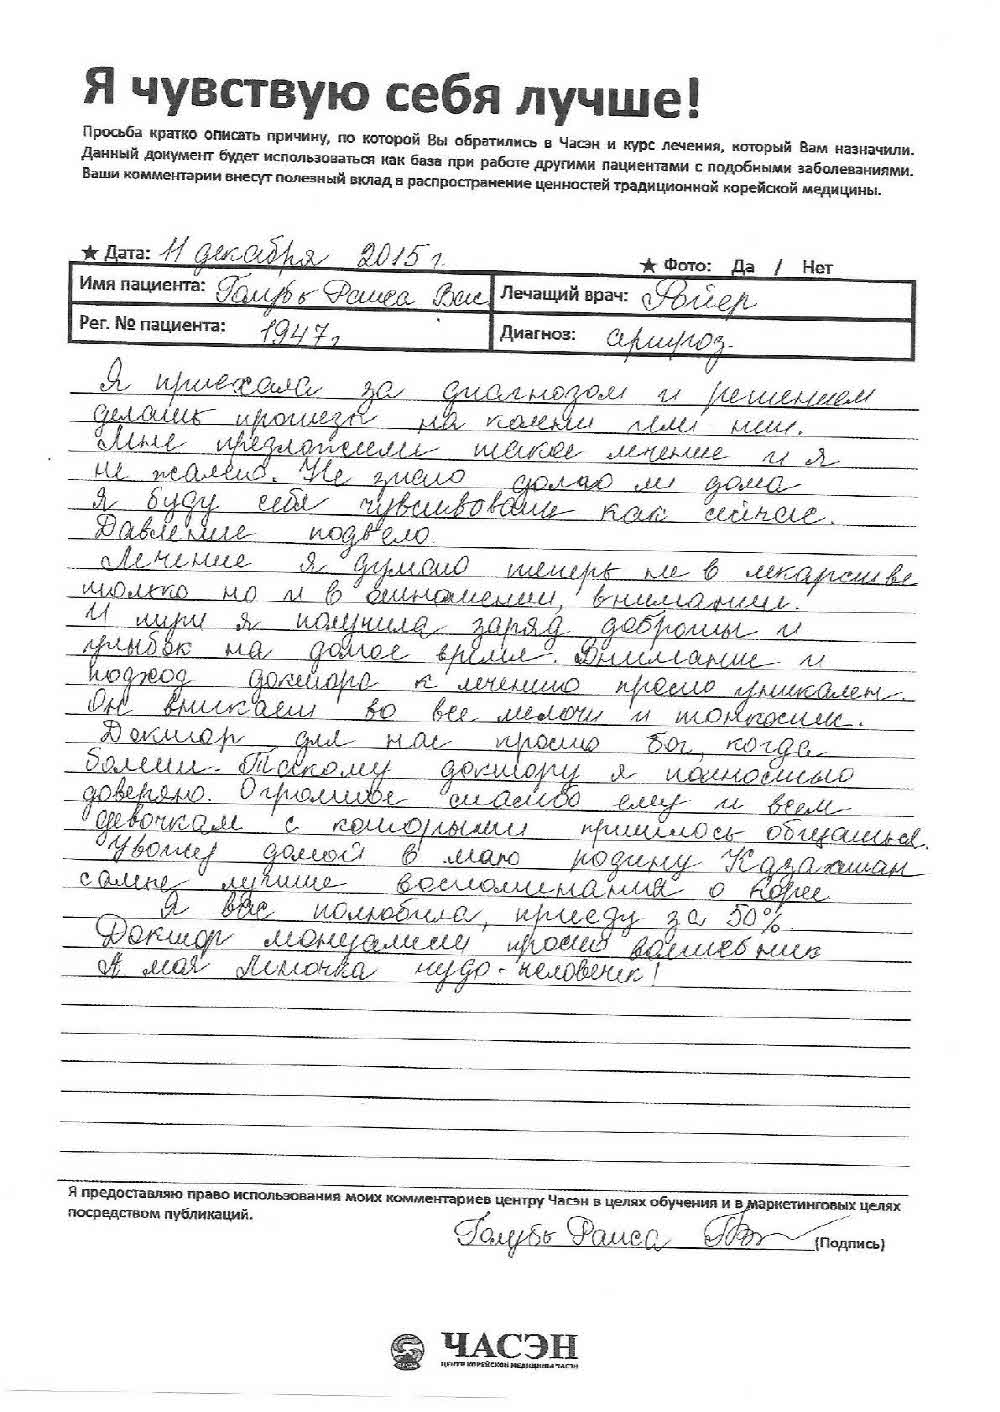 Я чувствую себя лучше!
Просьба кратко описать причину, по которой Вы обратились в Часэн и курс лечения, который Вам назначили.
Данный документ будет использоваться как база при работе другими пациентами с подобными заболеваниями.
Ваши комментарии внесут полезный вклад в распространение ценностей традиционной корейской медицины.
★ Дата: 11 декабря 2015 г.
★ Фото: Да / Нет
Имя пациента: Голубь Раиса Вас. Лечащий врач: Ройер
Рег. № пациента: 1947 г Диагноз: артроз.
Я приехала за диагнозом и решением
делать протезы на колени или нет.
Мне предложили такое лечение и я
не жалею. Не знаю долго ли дома
я буду себя чувствовать как сейчас.
Давление подвело.
Лечение я думаю теперь не в лекарстве
только но и в отношении, внимании.
И тут я получила заряд доброты и
улыбок на долгое время. Внимание и
подход доктора к лечению просто уникален.
Он вникает во все мелочи и тонкости.
Доктор для нас просто бог, когда
болит. Такому доктору я полностью
доверяю. Огромное спасибо ему и всем
девочкам с которыми пришлось общаться.
Увожу домой в мою родину Казахстан
самые лучшие воспоминания о Корее
Я вас полюбила, приеду за 50%.
Доктор просто волшебник
А моя Леночка чудо-человечек!
Я предоставляю право использования моих комментариев центру Часэн в целях обучения и в маркетинговых целях
посредством публикаций.
Голубь Раиса (Подпись)
ЧАСЭН
ЦЕНТР КОРЕЙСКОЙ МЕДИЦИНЫ ЧАСЭН